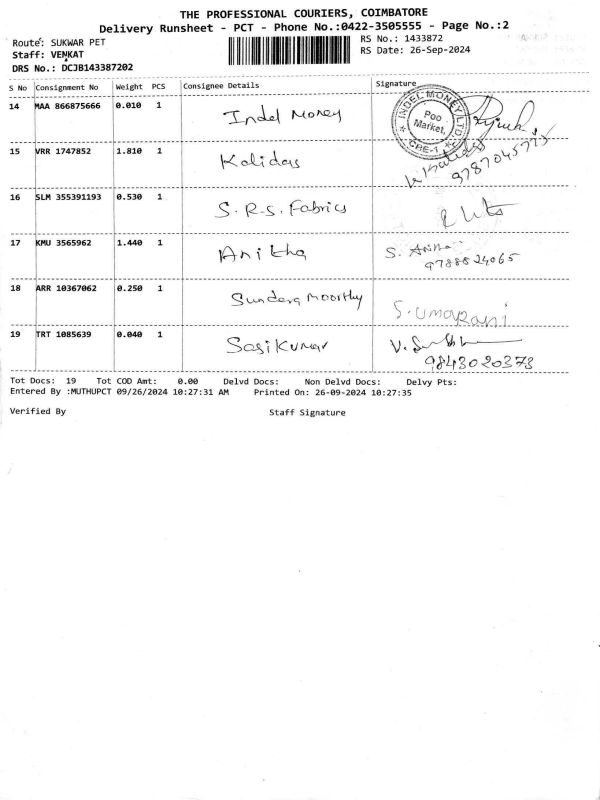 THE PROFESSIONAL COURIERS, COIMBATORE
Delivery Runsheet - PCT - Phone No.:0422-3505555 - Page No.:2
Route: SUKWAR PET
RS No.: 1433872
Staff: VENKAT
RS Date: 26-Sep-2024
DRS No.: DCJB143387202
S No Consignment No Weight PCS Consignee Details Signature
14 MAA 866875666 0.010 1 Indel Money
INDEL MONEY LTD. Poo Market, CBE-1
15 VRR 1747852 1.810 1 Kalidas
9787045775
16 SLM 355391193 0.530 1 S.R.S. Fabrics
17 KMU 3565962 1.440 1 Anitha S. Anitha
9788824065
18 ARR 10367062 0.250 1 Sundara moorthy S. UMARANI
19 TRT 1085639 0.040 1 Sasikumar
9843020373
Tot Docs: 19 Tot COD Amt: 0.00 Delvd Docs: Non Delvd Docs: Delvy Pts:
Entered By :MUTHUPCT 09/26/2024 10:27:31 AM Printed On: 26-09-2024 10:27:35
Verified By Staff Signature